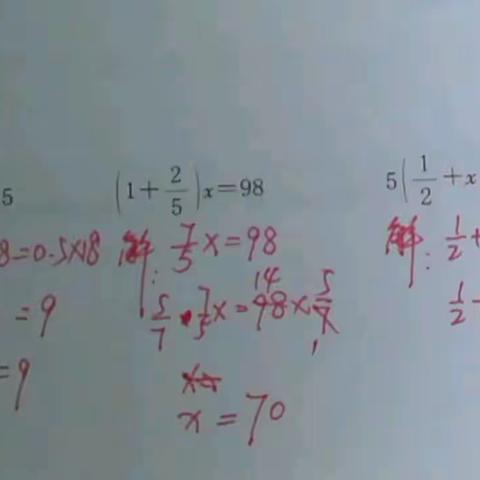 5
(1+2/5)x=98
5(1/2+x
8=0.5×18
=9
=9
解: 7/5x=98
5/7·7/5x=98×5/7
14
1
x=70
解: 1/2+
1/2-